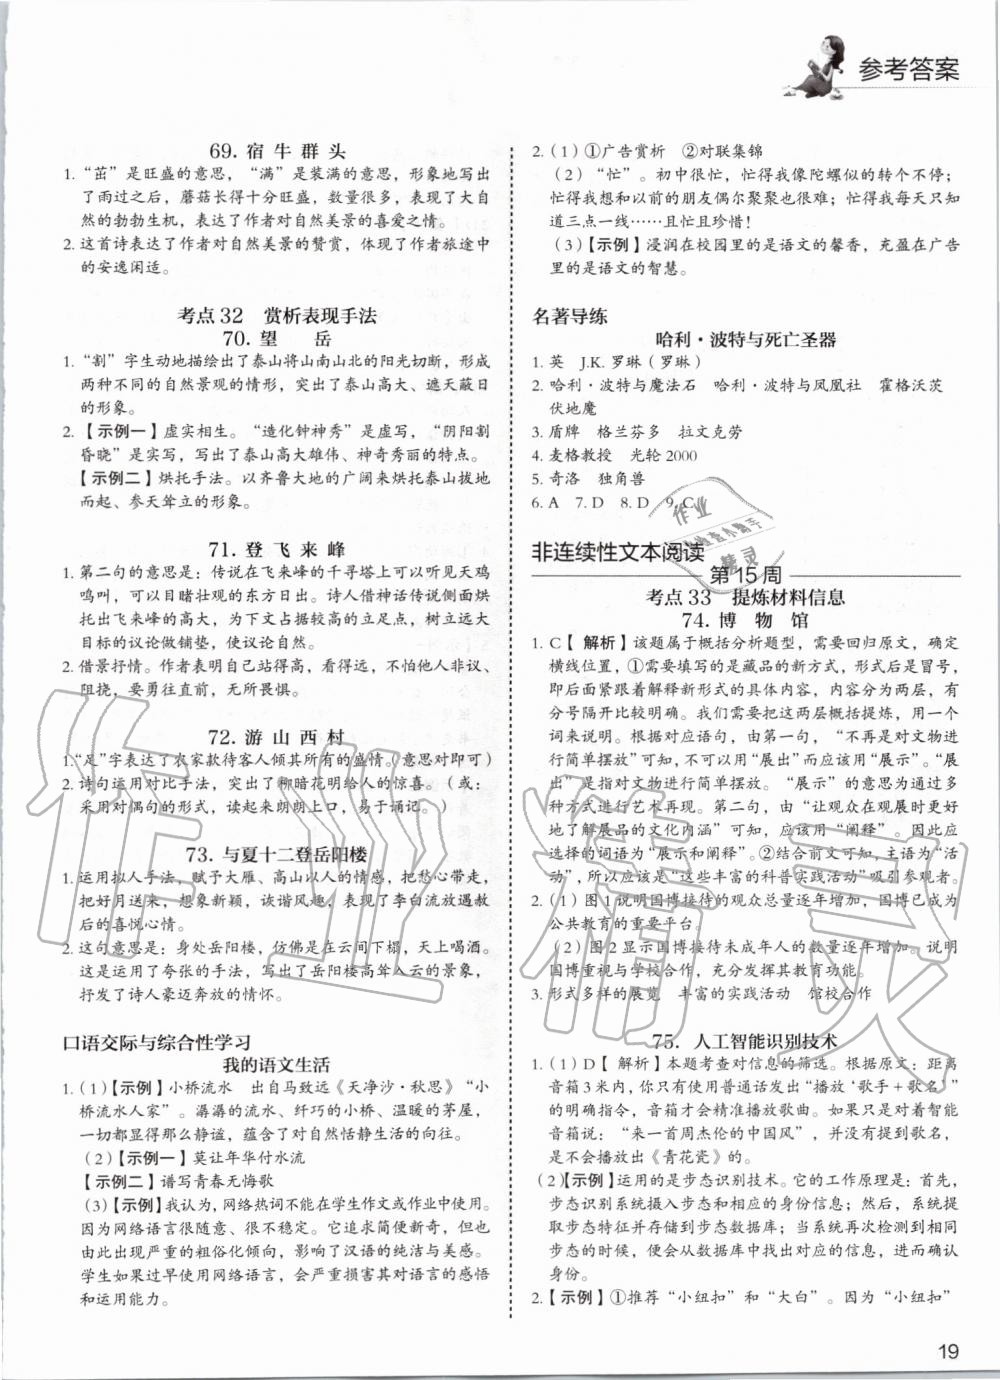 参考答案
69. 宿牛群头
1. “茁”是旺盛的意思，“满”是装满的意思，形象地写出
了雨过之后，蘑菇长得十分旺盛，数量很多，表现了大自
然的勃勃生机，表达了作者对自然美景的喜爱之情。
2. 这首诗表达了作者对自然美景的赞赏，体现了作者旅途中
的安逸闲适。
考点32 赏析表现手法
70. 望 岳
1. “割”字生动地描绘出了泰山将山南山北的阳光切断，形成
两种不同的自然景观的情形，突出了泰山高大、遮天蔽日
的形象。
2. 【示例一】虚实相生。“造化钟神秀”是虚写，“阴阳割
昏晓”是实写，写出了泰山高大雄伟、神奇秀丽的特点。
【示例二】烘托手法。以齐鲁大地的广阔来烘托泰山拔地
而起、参天耸立的形象。
71. 登飞来峰
1. 第二句的意思是：传说在飞来峰的千寻塔上，可以听见天鸡
鸣叫，可以目睹壮观的东方日出。诗人借神话传说侧面烘
托出飞来峰的高大，为下文议论提高了立足点，树立远大
目标的议论做铺垫，使议论自然。
2. 借景抒情。作者表明自己站得高，看得远，不怕他人非议、
阻挠，要勇往直前，无所畏惧。
72. 游山西村
1. “足”字表达了农家款待客人倾其所有的盛情。（意思对即可）
2. 诗句运用对比手法，突出了柳暗花明给人的惊喜。（或：
采用对偶句的形式，读起来朗朗上口，易于诵记。）
73. 与夏十二登岳阳楼
1. 运用拟人手法，赋予大雁、高山以人的情感，把愁心带走，
把好月送来，想象新颖，诙谐风趣，表现了李白流放遇赦
后的喜悦心情。
2. 这句意思是：身处岳阳楼，仿佛是在云间下榻，天上喝酒。
这里运用了夸张的手法，写出了岳阳楼高耸入云的景象，
抒发了诗人豪迈奔放的情怀。
口语交际与综合性学习
我的语文生活
1. （1）【示例】小桥流水 出自马致远《天净沙·秋思》“小
桥流水人家”。潺潺的流水、纤巧的小桥、温暖的茅屋，
一切都显得那么静谧，蕴含了对自然恬静生活的向往。
（2）【示例一】莫让年华付水流
【示例二】谱写青春无悔歌
（3）【示例】我认为，网络热词不能在学生作文或作业中使用。
因为网络语言很随意、很不稳定。它追求简便新奇，但也
由此出现严重的粗俗化倾向，影响了汉语的纯洁与美感。
学生如果过早使用网络语言，会严重损害其对语言的感悟
和运用能力。
2. （1）①广告赏析 ②对联集锦
（2）“忙”。初中很忙，忙得我像陀螺似的转个不停；
忙得我想和以前的朋友偶尔聚聚也很难；忙得我每天只知
道三点一线……且忙且珍惜！
（3）【示例】浸润在校园里的是语文的馨香，充盈在广告
里的是语文的智慧。
名著导练
哈利·波特与死亡圣器
1. 英 J.K. 罗琳（罗琳）
2. 哈利·波特与魔法石 哈利·波特与凤凰社 霍格沃茨
伏地魔
3. 盾牌 格兰芬多 拉文克劳
4. 麦格教授 光轮2000
5. 奇洛 独角兽
6. A 7. D 8. D 9. C
非连续性文本阅读
第15周
考点33 提炼材料信息
74. 博 物 馆
1. C【 解析】该题属于概括分析题型，需要回归原文，确定
横线位置，①需要填写的是藏品的新方式，形式后是冒号，
即后面紧跟着解释新形式的具体内容，内容分为两层，有
分号隔开比较明确。我们需要把这两层概括提炼，用一个
词来说明。根据对应语句，由第一句，“不再是对文物进
行简单摆放”可知，不可以用“展出”而应该用“展示”。“展
出”是指对文物进行简单摆放。“展示”的意思为通过多
种方式进行艺术再现。第二句，由“让观众在观展时更好
地了解展品的文化内涵”可知，应该用“阐释”。因此应
选择的词语为“展示和阐释”。②结合前文可知，主语为“活
动”，所以应该是“这些丰富的科普实践活动”吸引参观者。
2. （1）图1说明国博接待的观众总量逐年增加，国博已成为
公共教育的重要平台。
（2）图2显示国博接待未成年人的数量逐年增加。说明
国博重视与学校合作，充分发挥其教育功能。
3. 形式多样的展览 丰富的实践活动 馆校合作
75. 人工智能识别技术
1. （1）D【 解析】本题考查对信息的筛选。根据原文：距离
音箱3米内，你只要对它发出“播放‘歌手+歌名’”
的明确指令，音箱才会精准播放歌曲。如果只是对着智能
音箱说：“来一首周杰伦的中国风”，并没有说出歌名，
是不会播放出《青花瓷》的。
（2）【示例】运用的是步态识别技术。它的工作原理是：首先，
步态识别系统摄入步态和相应的身份信息；然后，系统提
取步态特征并存储到步态数据库；当系统再次检测到相同
步态的时候，便会从数据库中找出对应的信息，进而确认
身份。
2. 【示例】①推荐“小纽扣”和“大白”。因为“小纽扣”
19
作业
精灵
作业精灵